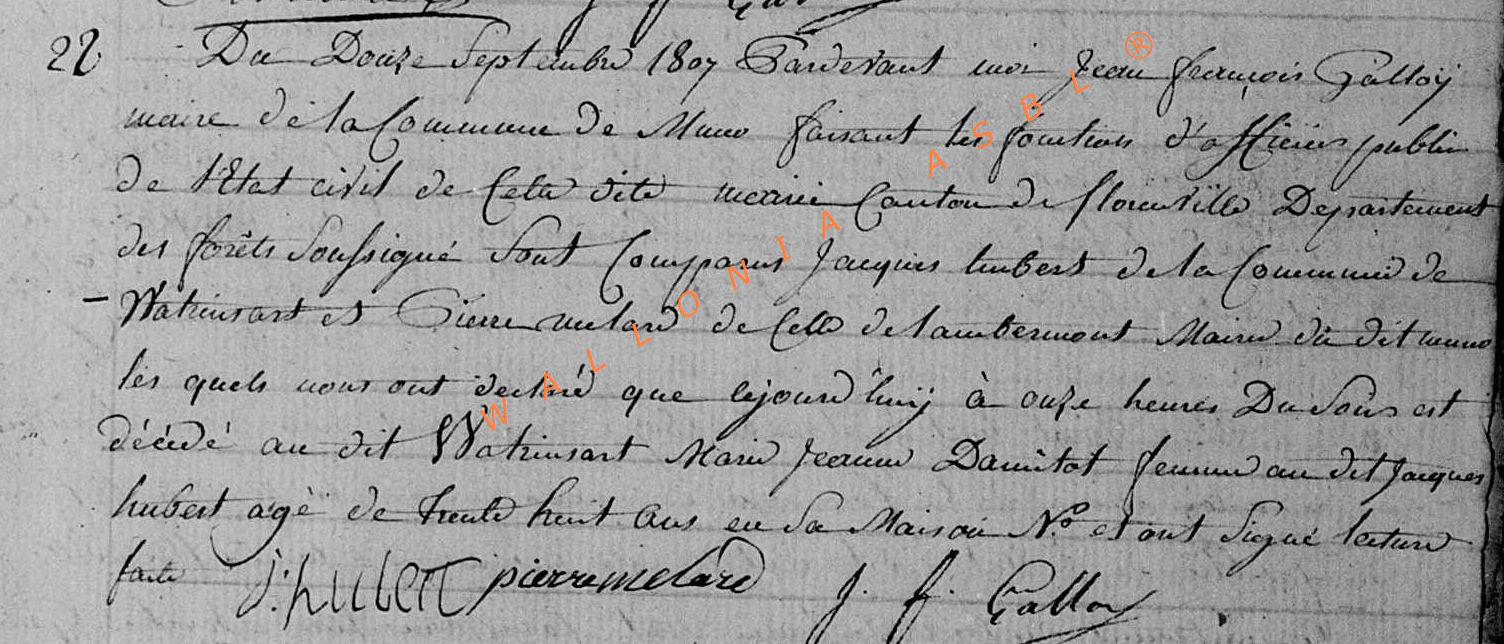 22 Du Douze Septembre 1807 Pardevant moi Jean françois Galloÿ
maire de la Commune de Muno faisant les fonctions d'officier public
de l'Etat civil de Cette dite mairie Canton de florenville Departement
des forêts Soussigné Sont Comparus Jacques hubert de la Commune de
Watrinsart et Pierre melard de Celle de lambermont Mairie du dit muno
les quels nous ont declaré que cejourd'huÿ à onze heures Du Soir est
décédé au dit Watrinsart Marie Jeanne Damitot femme au dit Jacques
hubert agé de trente huit ans en Sa Maison N.° et ont Signé lecture
faite J: hubert pierre melard J. f. Galloy
WALLONIA ASBL ®